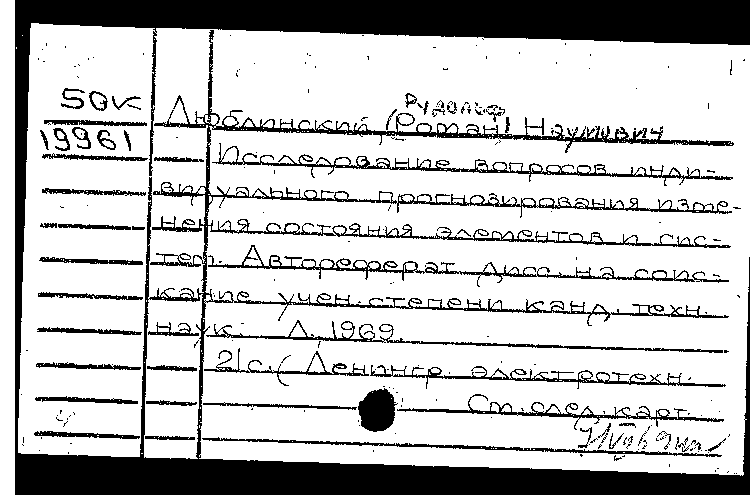 50к
19961
Рудольф
Люблинский (Роман) Наумович
Исследование вопросов инди-
видуального прогнозирования изме-
нения состояния элементов и сис-
тем. Автореферат дисс. на соис-
кание учен. степени канд. техн.
наук. Л. 1969.
21с. (Ленингр. электротехн.
См. след. карт.
4